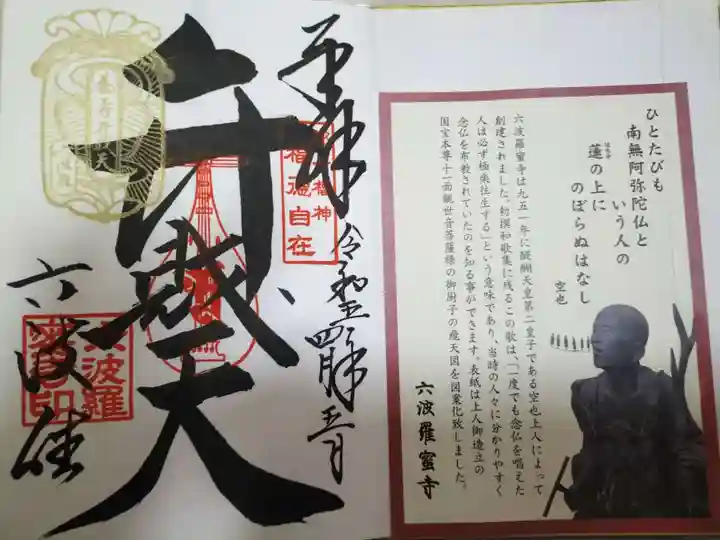 奉拝
令和
弁財天
六波羅
六波羅
福徳自在
ひとたびも
南無阿弥陀仏と
いう人の
蓮の上に
はちす
のぼらぬはなし
空也
六波羅蜜寺は九五一年に醍醐天皇第二皇子である空也上人によって
創建されました。勅撰和歌集に残るこの歌は、「一度でも念仏を唱えた
人は必ず極楽往生する」という意味であり、当時の人々に分かりやすく
念仏を布教されていたのを知る事ができます。表紙は上人御造立の
国宝本尊十一面観世音菩薩様の御厨子の飛天図を図案化致しました。
六波羅蜜寺